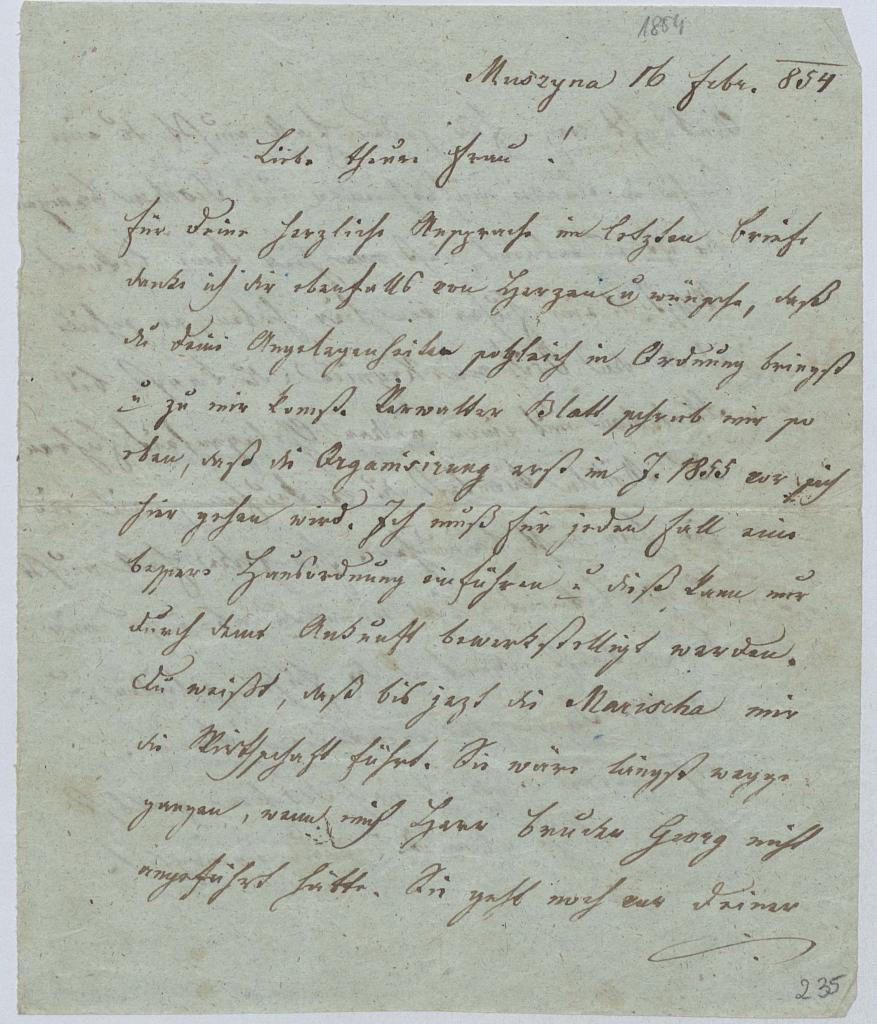 1854
Muszyna 16 Febr. 854
Liebe theure Frau!
Für Deine herzliche Ansprache im letzten Briefe
danke ich dir ebenfalls von Herzen u wünsche, daß
du Deine Angelegenheiten sogleich in Ordnung bringst
u zu mir komst. Verwalter Blatt schrieb mir so
eben, daß die Organisirung erst im J. 1855 vor sich
hier gehen wird. Ich muß für jeden Fall eine
bessere Hausordnung einführen u dieß kann nur
durch deine Ankunft bewerkstelligt werden.
Du weißt, daß bis jezt die Marischa mir
die Wirthschaft führt. Sie wäre längst wegge
gangen, wenn mich Herr Bruder Georg nicht
angeführt hätte. Sie geht noch vor Deiner
235